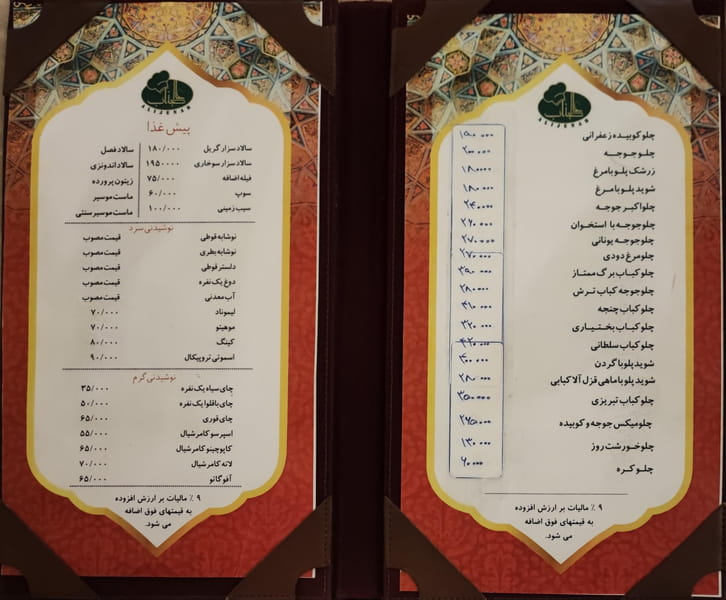 ALIJENAB
چلو کوبیده زعفرانی ۱۹۰۰۰۰
چلو جوجه ۲۰۰۰۰۰
زرشک پلو با مرغ ۱۸۰۰۰۰
شوید پلو با مرغ ۱۸۰۰۰۰
چلو اکبر جوجه ۲۴۰۰۰۰
چلو جوجه با استخوان ۲۶۰۰۰۰
چلو جوجه یونانی ۲۷۰۰۰۰
چلو مرغ دودی ۲۷۰۰۰۰
چلو کباب برگ ممتاز ۳۹۰۰۰۰
چلو جوجه کباب ترش ۲۸۰۰۰۰
چلو کباب چنجه ۴۱۰۰۰۰
چلو کباب بختیاری ۳۲۰۰۰۰
چلو کباب سلطانی ۴۲۰۰۰۰
شوید پلو با گردن ۴۰۰۰۰۰
شوید پلو با ماهی قزل آلا کبابی ۲۸۰۰۰۰
چلو کباب تبریزی ۳۵۰۰۰۰
چلو میکس جوجه و کوبیده
چلو خورشت روز ۱۳۰۰۰۰
چلو کره ۶۰۰۰۰
۹ ٪ مالیات بر ارزش افزوده
به قیمتهای فوق اضافه
می شود.
ALIJENAB
پیش غذا
سالاد سزار گریل ۱۸۰/۰۰۰ سالاد فصل
سالاد سزار سوخاری ۱۹۵۰۰۰۰ سالاد اندونزی
فیله اضافه ۷۵/۰۰۰ زیتون پرورده
سوپ ۶۰/۰۰۰ ماست موسیر
سیب زمینی ۱۰۰/۰۰۰ ماست موسیر سنتی
نوشیدنی سرد
نوشابه قوطی قیمت مصوب
نوشابه بطری قیمت مصوب
دلستر قوطی قیمت مصوب
دوغ یک نفره قیمت مصوب
آب معدنی قیمت مصوب
لیموناد ۷۰/۰۰۰
موهیتو ۷۰/۰۰۰
کینگ ۸۰/۰۰۰
اسموتی تروپیکال ۹۰/۰۰۰
نوشیدنی گرم
چای سیاه یک نفره ۳۵/۰۰۰
چای باقلوا یک نفره ۵۰/۰۰۰
چای قوری ۶۵/۰۰۰
اسپرسو کامرشیال ۵۵/۰۰۰
کاپوچینو کامرشیال ۶۵/۰۰۰
لاته کامرشیال ۷۰/۰۰۰
آفوگاتو ۶۵/۰۰۰
۹ ٪ مالیات بر ارزش افزوده
به قیمتهای فوق اضافه
می شود.